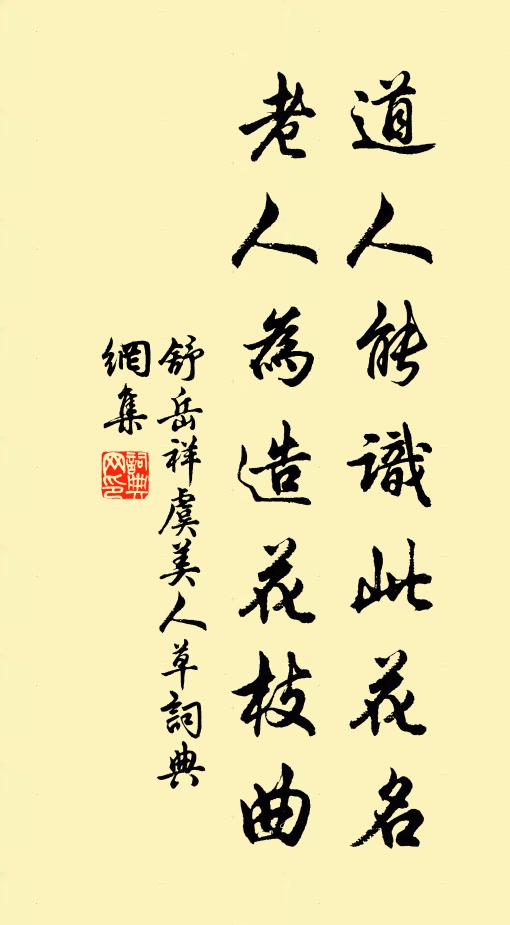 道人能識此花名
老人為造花枝曲
舒岳祥虞美人草詞典
網集
詞典
网印